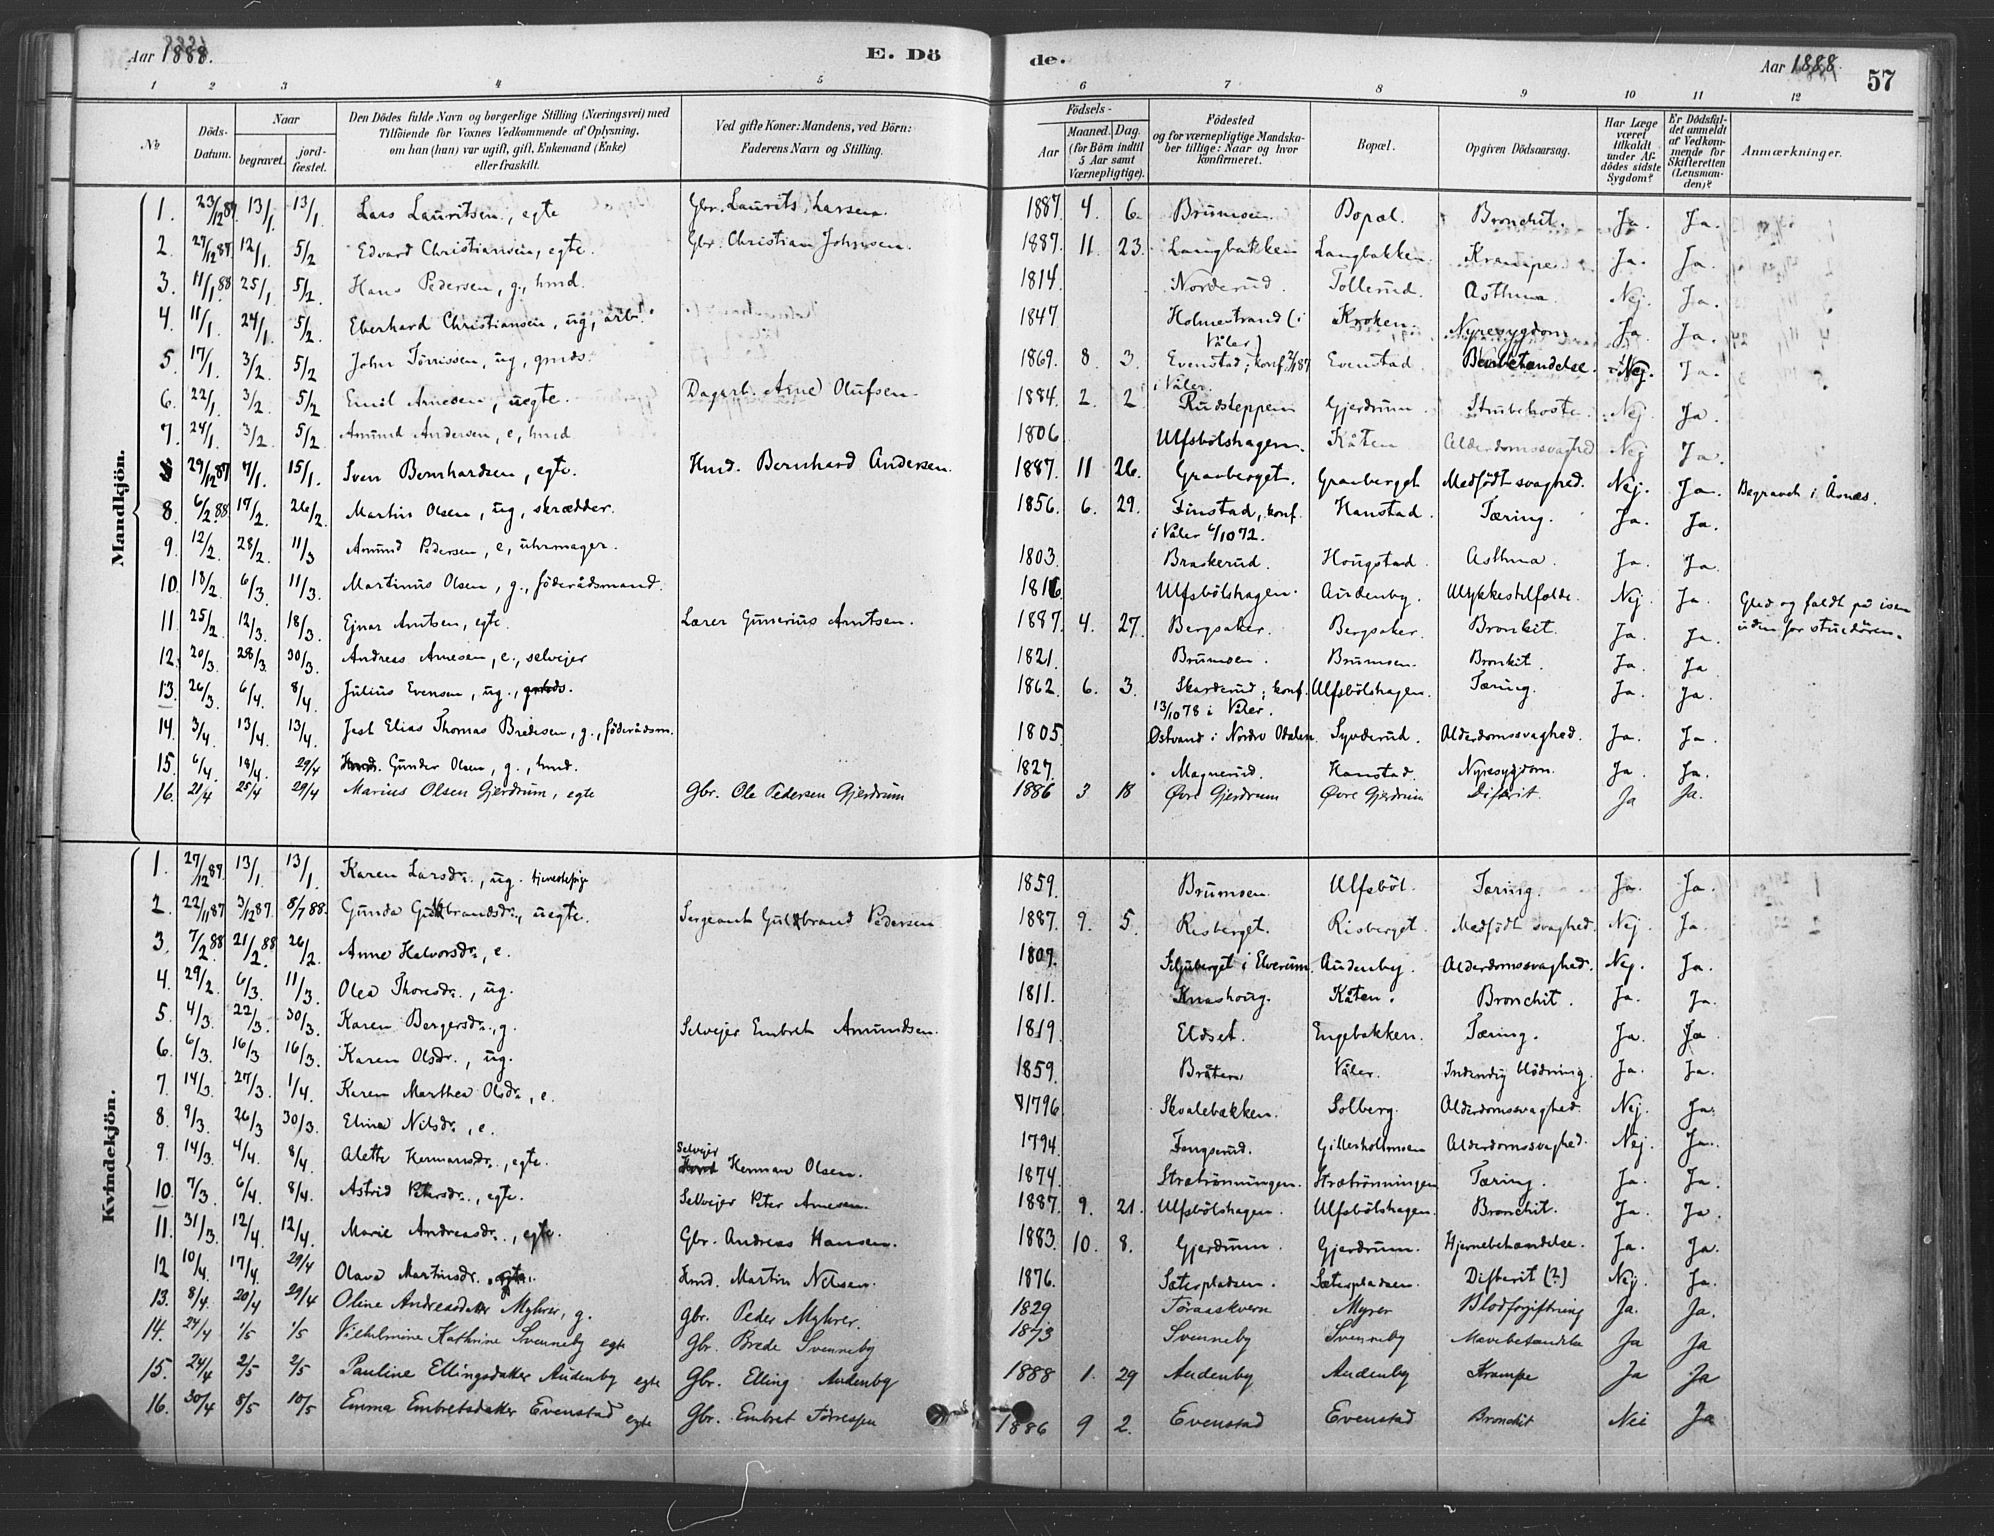 Aar 1888.
E. Dö
de.
Aar 1888.
57
1 2 3 4 5 6 7 8 9 10 11 12
No
Döds-Datum.
Naar
begravet.
jord-fæstet.
Den Dödes fulde Navn og borgerlige Stilling (Næringsvei) med
Tilföiende for Voxnes Vedkommende af Oplysning,
om han (hun) var ugift, gift, Enkemand (Enke)
eller fraskilt.
Ved gifte Koner: Mandens, ved Börn:
Faderens Navn og Stilling.
Födsels-
Aar
Maaned. Dag.
(for Börn indtil
5 Aar samt
Værnepligtige).
Födested
og for værnepligtige Mandska-
ber tillige: Naar og hvor
konfirmeret.
Bopæl.
Opgiven Dödsaarsag.
Har Læge
været
tilkaldt
under Af-
dödes sidste
Sygdom?
Er Dödsfal-
det anmeldt
af Vedkom-
mende for
Skifteretten
(Lensman-
den)?
Anmærkninger.
Mandkjön.
1. 23/12 87. 13/1. 13/1. Lars Lauritsen, egte Gbr. Laurits Larsen. 1887. 4. 6. Brumsen. Bopæl. Bronchit. Ja. Ja.
2. 27/12 87. 12/1. 5/2 Edvard Christiansen, egte. Gbr. Christian Johnsen. 1887. 11. 23. Langbakken Langbakken. Krampe. Ja. Ja.
3. 11/1 88 25/1. 5/2. Hans Pedersen, g., hmd. 1814. Norderud. Tollerud. Asthma. Nej. Ja.
4. 11/1. 24/1. 5/2. Eberhard Christiansen, ug, arb. 1847 Holmestrand (i Våler) Kroken. Nyresygdom Ja. Ja.
5. 17/1. 3/2. 5/2 John Törrissen, ug, gmds. 1869. 8. 3. Evenstad; konf. 2/1 87 i Våler. Evenstad Nej. Ja.
6. 22/1. 3/2. 5/2 Emil Arnesen, uegte. Dagarb. Arne Olufsen. 1884. 2. 2 Rudsteppen Gjerdrum. Strubehoste. Nej. Ja
7. 24/1. 3/2 5/2 Amund Andersen, e, hmd 1806 Ulfsbölshagen. Kåten Alderdomssvaghed Nej Ja.
29/12 87 7/1. 15/1. Sven Bernhardsen, egte. Hmd. Bernhard Andersen. 1887. 11 26. Gravberget. Gravberget Medfödt svaghed. Nej. Ja. Begravet i Åsnæs.
8. 6/2. 88 17/2. 26/2. Martin Olsen, ug, skrædder. 1856. 6. 29. Finstad, konf. i Våler 6/10 72. Hanstad. Tæring. Ja. Ja.
9. 12/2. 28/2. 11/3 Amund Pedersen, e, uhrmager. 1803. Braskerud. Hougstad. Asthma. Ja. Ja.
10. 18/2. 6/3. 11/3. Martinus Olsen, g., föderådsmand. 1816. Ulfsbölshagen. Audenby. Ulykkestilfælde. Nej. Ja. Gled og faldt på isen
udenfor stuedören.
11. 25/2. 12/3. 18/3. Ejnar Arntsen, egte. Lærer Gunerius Arntsen. 1887. 4. 27. Bergsaker. Bergsaker. Bronkit. Ja. Ja.
12. 20/3. 28/3. 30/3. Andreas Arnesen, e., selvejer 1821. Brumsen. Brumsen. Bronkit. Ja. Ja
13. 26/3. 6/4. 8/4. Julius Evensen, ug., gmds. 1862. 6. 3. Skarderud; konf. 13/10 78 i Våler. Ulfsbölshagen. Tæring. Ja. Ja.
14. 3/4. 13/4. 13/4. Elias Thomas Bredesen, g., föderådsm. 1805. Østvand i Nordre Odalen Syverud. Alderdomssvaghed. Ja. Ja.
15. 6/4. 18/4. 29/4 Hmd. Gunder Olsen, g., hmd. 1827. Magnerud. Hanstad. Nyresygdom. Ja. Ja.
16. 21/4 25/4 29/4 Marius Olsen Gjerdrum, egte Gbr. Ole Pedersen Gjerdrum 1886 3 18 Øvre Gjerdrum Øvre Gjerdrum Difterit Ja Ja.
Kvindekjön.
1. 27/12 87. 13/1. 13/1. Karen Larsdr., ug. tjenestepige 1859. Brumsen. Ulfsböl. Tæring. Ja. Ja.
2. 22/11 87 3/12 87. 8/7 88. Gunda Gulbrandsdr., uegte. Sergeant Gulbrand Pedersen 1887. 9. 5. Risberget. Risberget. Medfödt svaghed. Nej. Ja.
3. 7/2. 88 21/2. 88 26/2. Anne Halvorsdr., e. 1809. i Elverum. Audenby. Alderdomssvaghed. Nej. Ja.
4. 29/2. 6/3. 11/3. Olea Thoresdr., ug. 1811. Knashoug. Kåten. Bronchit. Ja. Ja.
5. 4/3. 22/3. 30/3. Karen Bergersdr., g. Selvejer Embret Amundsen. 1819. Eldset. Engebakken. Tæring. Ja. Ja
6. 6/3. 16/3 16/3. Karen Olsdr., ug. 1859. Bråten Våler. Indvendig blödning. Ja. Ja.
7. 14/3 27/3. 1/4. Karen Marthea Olsdr., e. 1796. Skvalebakken. Solberg. Alderdomssvaghed. Nej. Ja.
8. 9/3. 26/3 30/3. Elina Nilsdr., e. 1794. Fengserud. Gillesholmen Alderdomssvaghed. Nej. Ja.
9. 14/3. 4/4. 8/4. Alette Hermansdr., egte. Selvejer Herman Olsen. 1874. Strætrönningen. Strætrönningen Tæring. Ja. Ja.
10. 7/3. 6/4. 8/4. Astrid Petersdr., egte. Selvejer Peter Arnesen. 1887. 9. 21. Ulfsbölshagen. Ulfsbölshagen. Bronchit. Ja. Ja.
11. 31/3. 12/4. 12/4. Marie Andreasdr., egte. Gbr. Andreas Hansen. 1883. 10. 8. Gjerdrum. Gjerdrum. Hjernebetændelse. Ja. Ja.
12 10/4. 17/4. 29/4 Olava Martinsdr. egte. Hmd. Martin Nilsen. 1876. Sæterpladsen. Sæterpladsen. Difterit (?) Nej. Ja.
13. 8/4. 20/4 29/4 Oline Andreasdatter Myhrer, g. Gbr. Peder Myhrer. 1829 Toraaskvern Myrer Blodforgiftning Ja. Ja.
14. 24/4 1/5 1/5 Vilhelmine Kathrine Svenneby egte Gbr. Brede Svenneby 1873 Svenneby Svenneby Mavebetændelse Ja Ja
15. 24/4 2/5 2/5 Pauline Ellingsdatter Audenby egte Gbr. Elling Audenby 1888 1. 29 Audenby Audenby Krampe Ja Ja
16. 30/4 8/5 10/5 Emma Embretsdatter Evenstad egte Gbr. Embret Törresen 1886 9 2. Evenstad Evenstad Bronchit Nei Ja